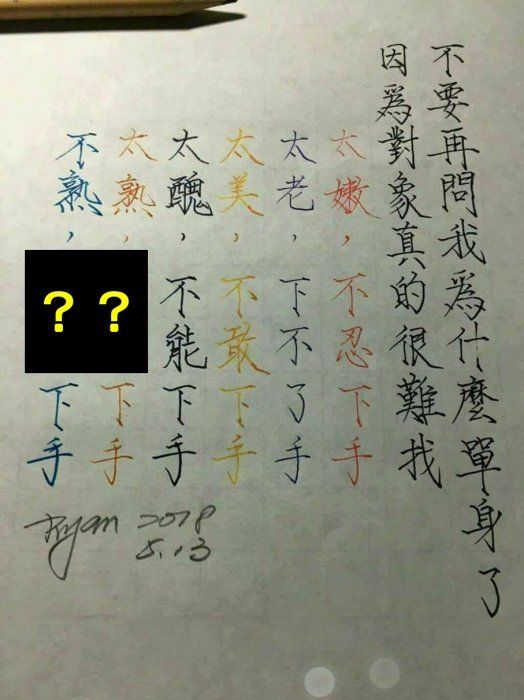 不要再問我為什麼單身了
因為對象真的很難找
太嫩，不忍下手
太老，下不了手
太美，不敢下手
太醜，不能下手
太熟，？下手
不熟，？下手
Ryan 2018
5.13